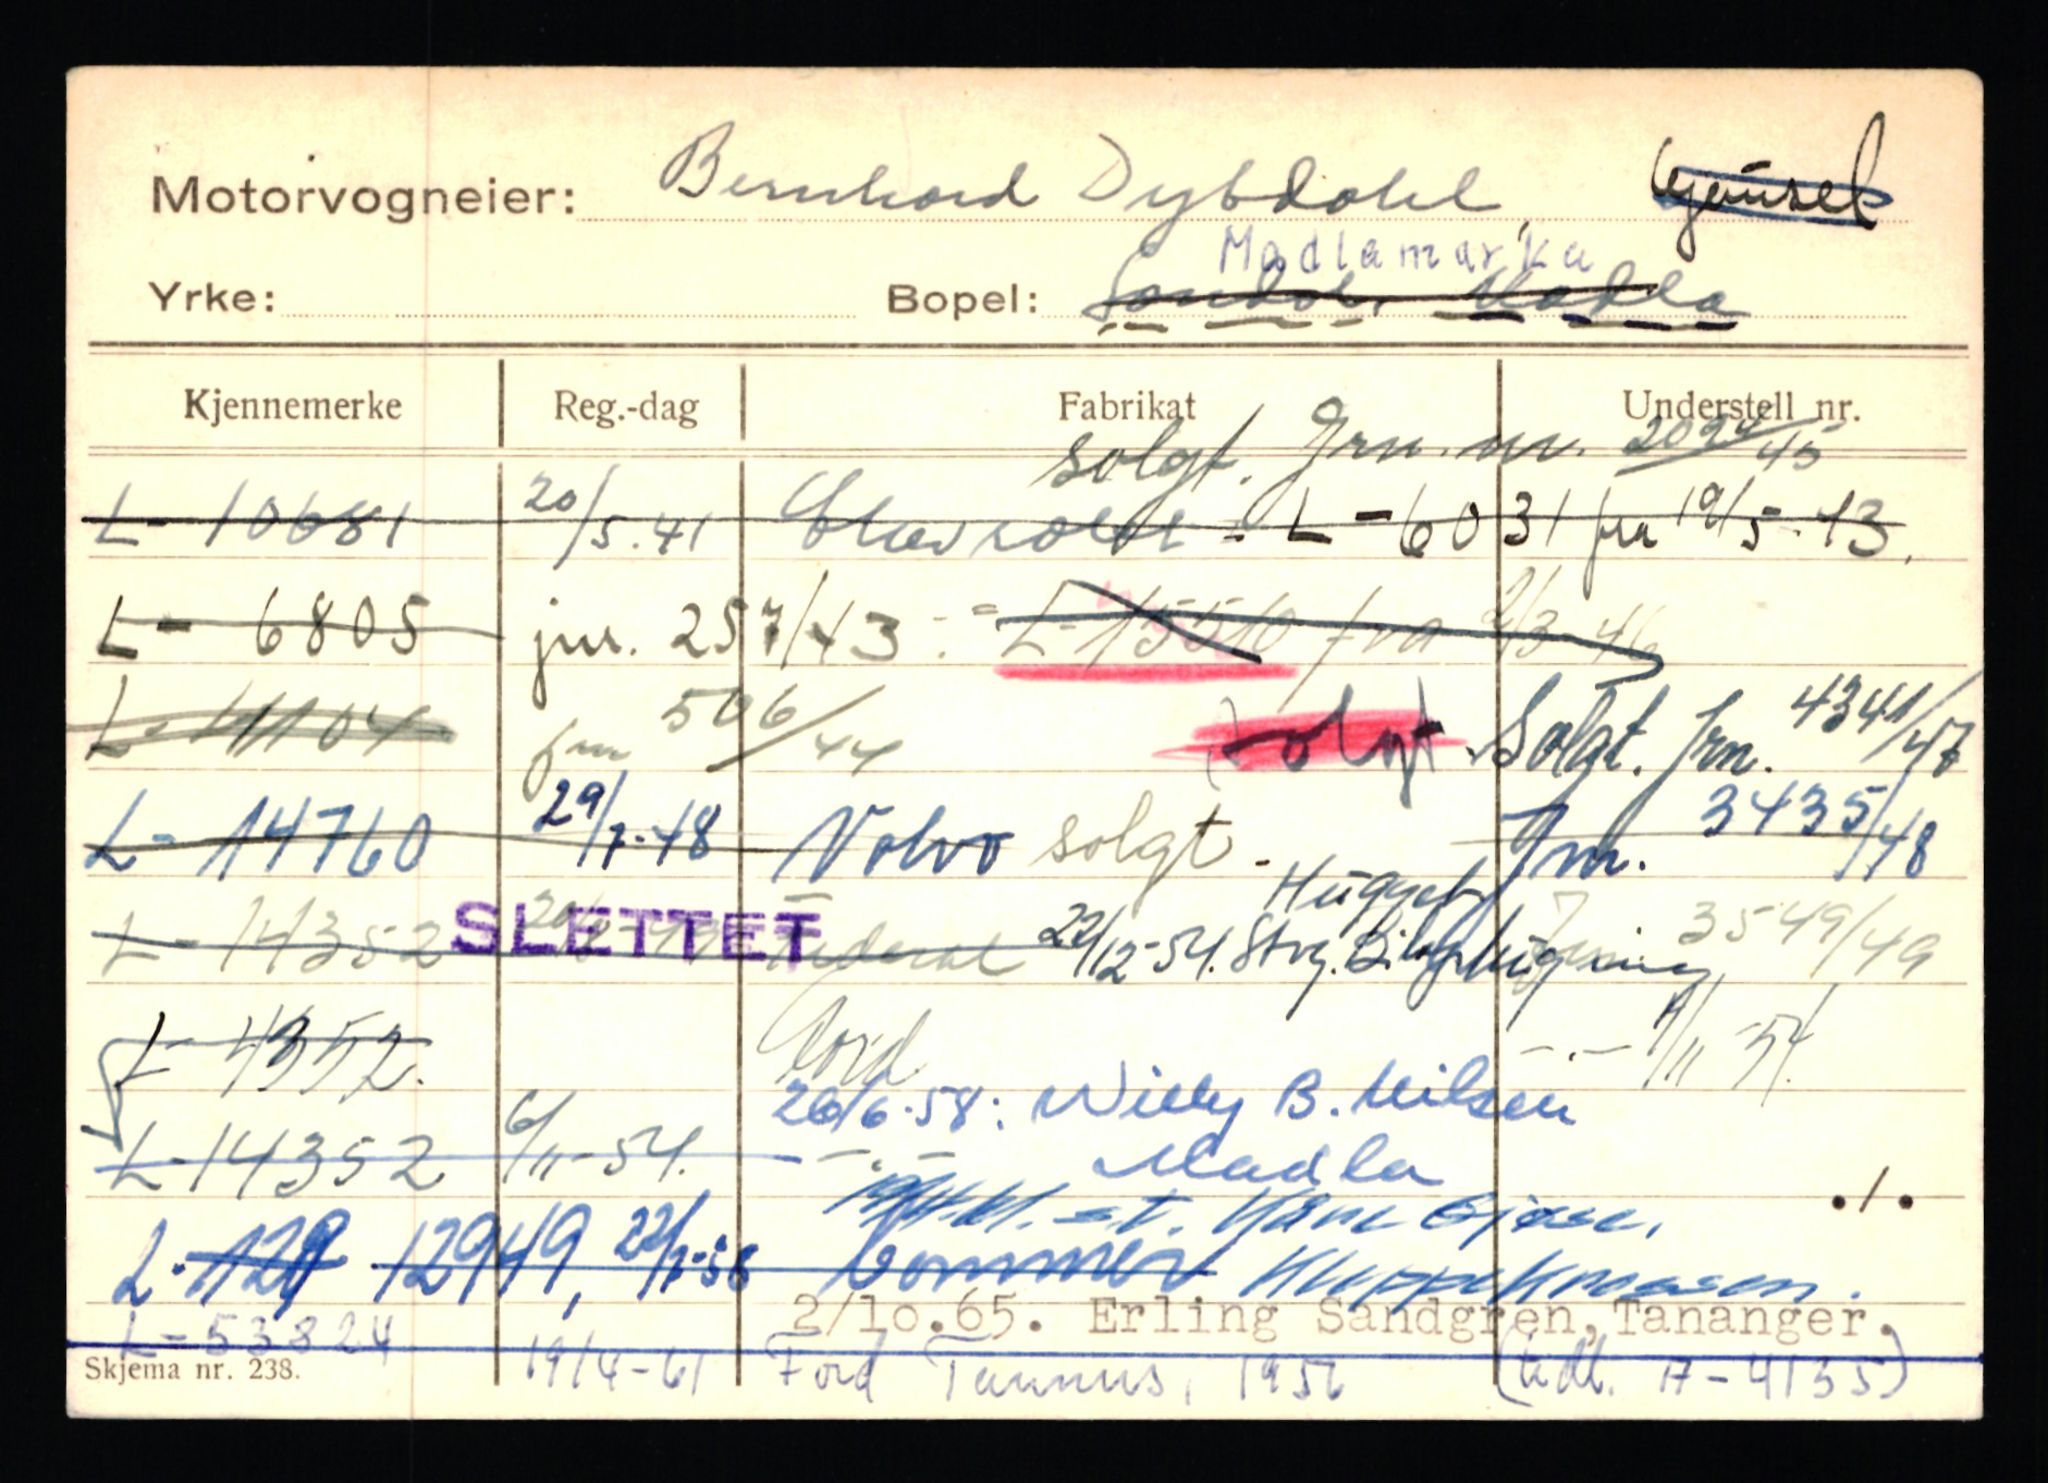 Motorvogneier: Bernhard Dybdahl
Madlamarka
Yrke: Bopel: Madla
Kjennemerke Reg.-dag Fabrikat Understell nr.
solgt. Jrn. nr. 2024/45
L - 10681 20/5.41 Chevrolet = L - 6031 fra 19/5-43.
L - 6805 jnr. 257/43. = L-15510 fra 2/3 46
L - 11104 jnr 506/44 solgt. Solgt. Jrn. 4341/47
L - 14760 29/7-48 Volvo solgt. Jnr. 3435/48
Hugget
L - 14352 SLETTET Federal 22/12-54. Stvg. Bilopphugging 3549/49
L - 4352. Ford -.- 1/11 54.
26/6-58: Willy B. Nilsen
L - 14352 6/11-54. -.- Madla
Kåre Gjøse, ./.
L - 129 12949, 22/7-58 Commer
2/10.65. Erling Sandgren, Tananger.
L - 53824 19/4-61 Ford Taunus, 1956 (tidl. A-4135)
Skjema nr. 238.